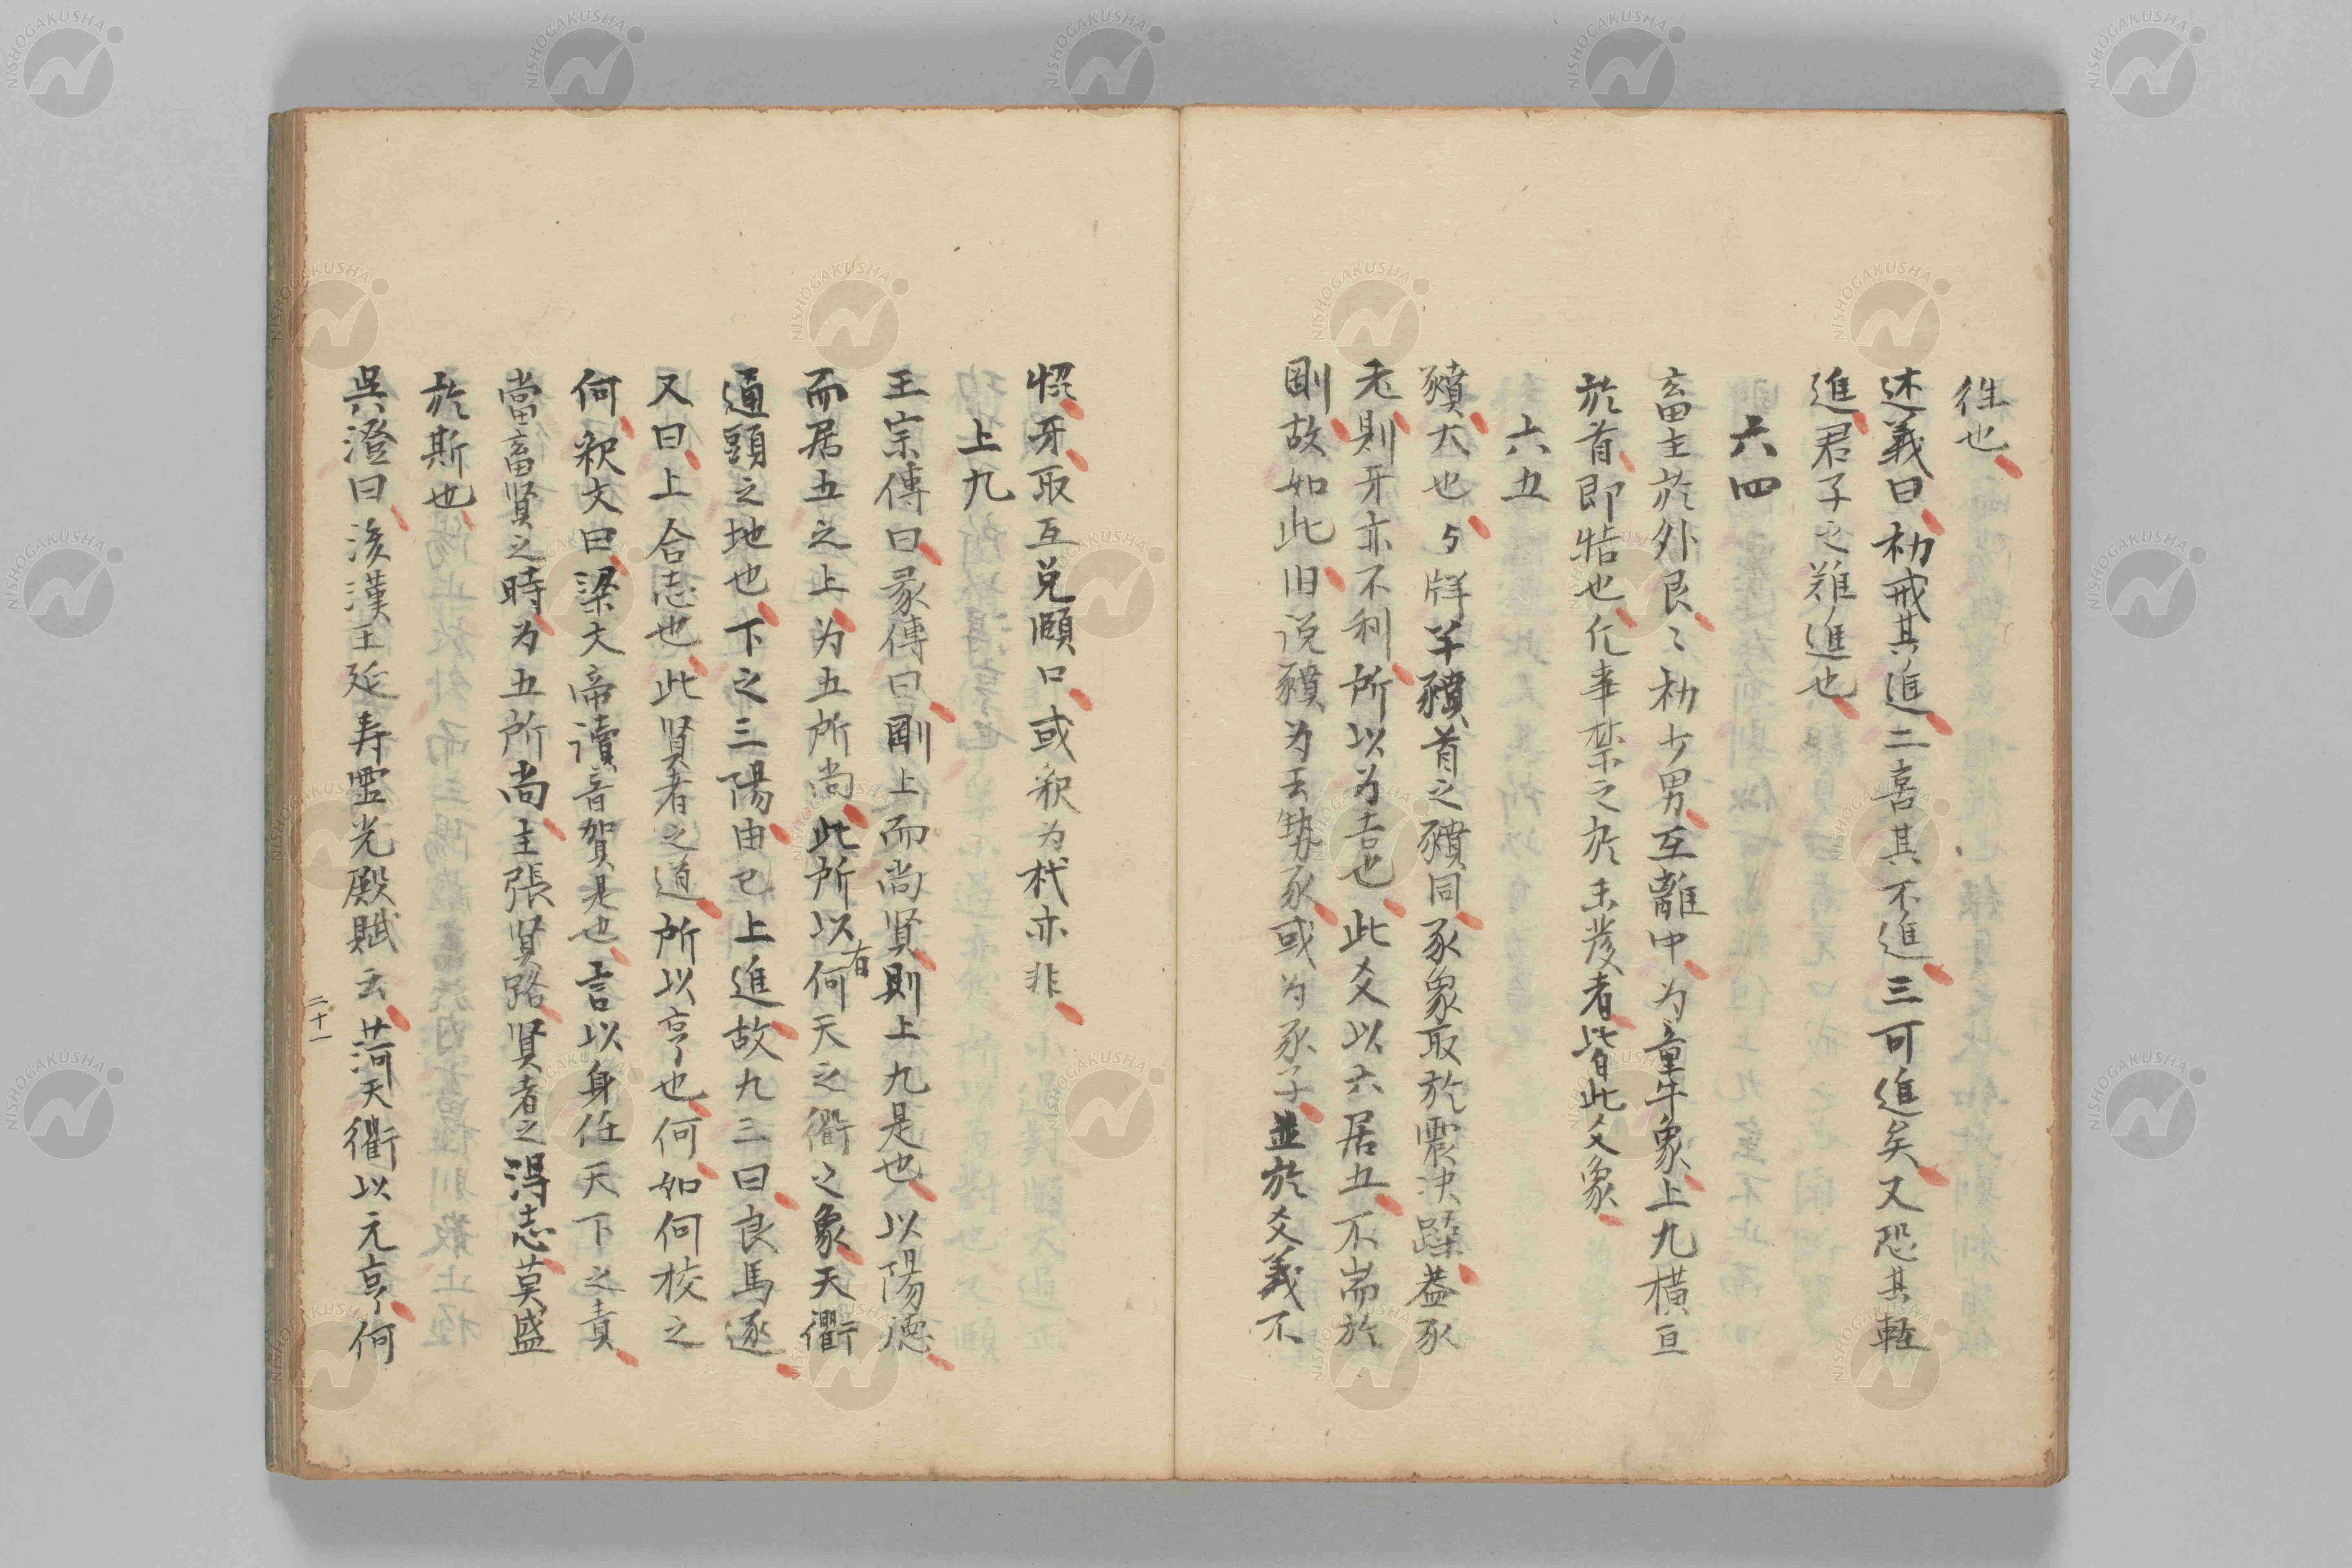 往也
述義曰初戒其進二喜其不進三可進矣又恐其輕
進君子之難進也
六四
畜主於外艮〻初少男互離中为童牛象上九横亘
於首即牿也凢事禁之於未發者皆此爻象
六五
豶大也与牂羊豶首之豶同豕象取於震决躁蓋豕
老則牙亦不利所以为吉也此爻以六居五不耑於
剛故如此旧说豶为去勢豕或为豕子並於爻義不
牙取互兌頤口或釈为杙亦非
上九
王宗傳曰彖傳曰剛上而尚賢則上九是也以陽德
而居五之上为五所尚此所以有何天之衢之象天衢
通頭之地也下之三陽由已上進故九三曰良馬逐
又曰上合志也此賢者之道所以亨也何如何校之
何釈文曰梁大帝讀音賀是也言以身任天下之責
當畜賢之時为五所尚主張賢路賢者之得志莫盛
於斯也
吳澄曰後漢王延寿霊光殿賦云荷天衢以元亨何
二十一
NISHOGAKUSHA